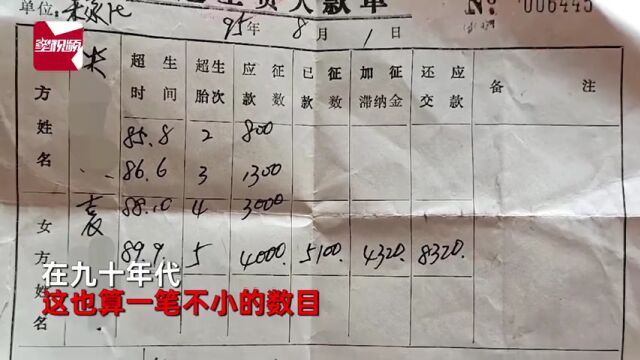 单位:
超生费欠款单
No 006445
95年8月1日
男方姓名 超生时间 超生胎次 应征款数 已征款数 加征滞纳金 还应交款 备注
朱 85.8 2 800
86.6 3 1300
女方姓名 袁 88.10 4 3000
89.9 5 4000. 5100. 4320. 8320.
在九十年代
这也算一笔不小的数目